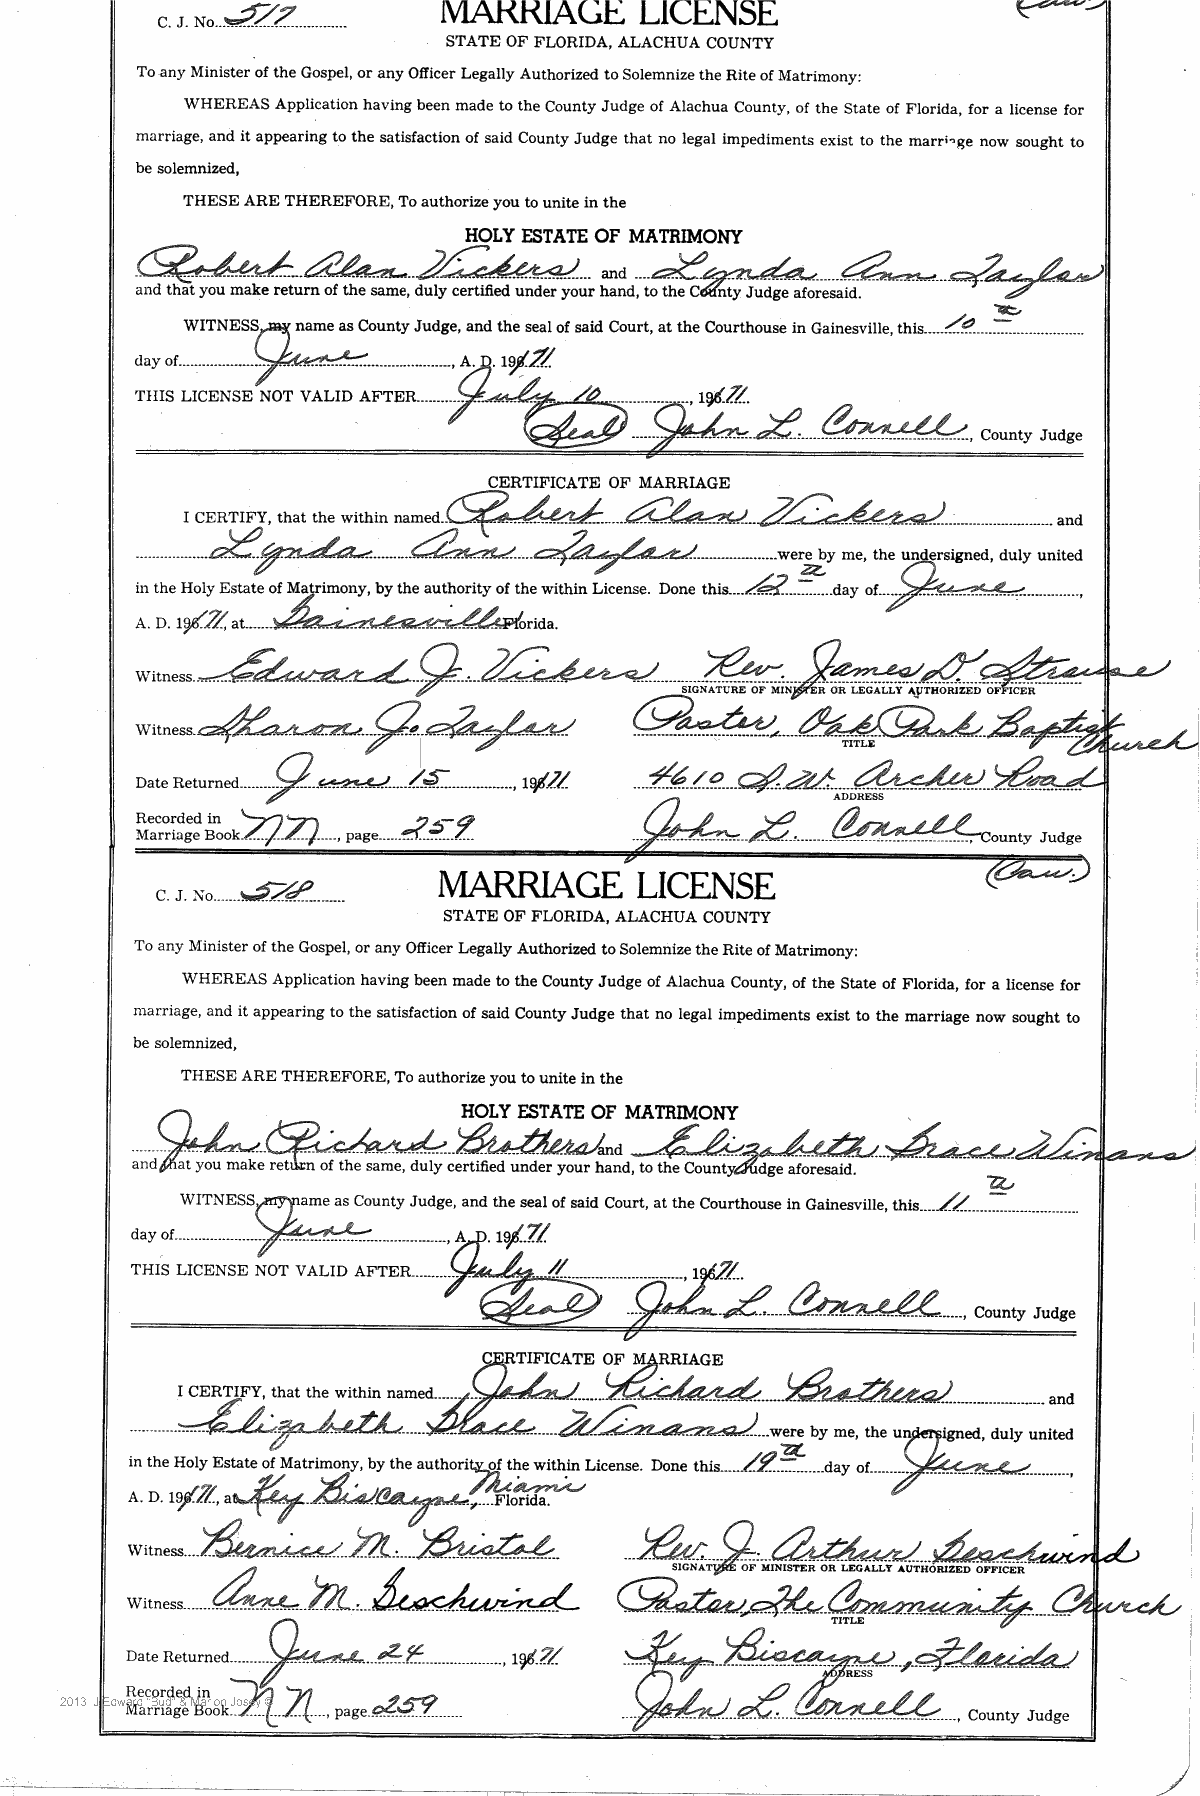 C. J. No. 517
MARRIAGE LICENSE
STATE OF FLORIDA, ALACHUA COUNTY
To any Minister of the Gospel, or any Officer Legally Authorized to Solemnize the Rite of Matrimony:
WHEREAS Application having been made to the County Judge of Alachua County, of the State of Florida, for a license for
marriage, and it appearing to the satisfaction of said County Judge that no legal impediments exist to the marriage now sought to
be solemnized,
THESE ARE THEREFORE, To authorize you to unite in the
HOLY ESTATE OF MATRIMONY
Robert Alan Vickers and Lynda Ann Taylor
and that you make return of the same, duly certified under your hand, to the County Judge aforesaid.
WITNESS, my name as County Judge, and the seal of said Court, at the Courthouse in Gainesville, this 10th
day of June, A. D. 1971
THIS LICENSE NOT VALID AFTER July 10, 1971
(Seal) John L. Connell, County Judge
CERTIFICATE OF MARRIAGE
I CERTIFY, that the within named Robert Alan Vickers and
Lynda Ann Taylor were by me, the undersigned, duly united
in the Holy Estate of Matrimony, by the authority of the within License. Done this 12th day of June,
A. D. 1971, at Gainesville Florida.
Witness Edward J. Vickers Rev. James D. Strause
SIGNATURE OF MINISTER OR LEGALLY AUTHORIZED OFFICER
Witness Sharon J. Taylor Pastor, Oak Park Baptist Church
TITLE
Date Returned June 15, 1971 4610 S.W. Archer Road
ADDRESS
Recorded in
Marriage Book NN, page 259 John L. Connell, County Judge
C. J. No. 518
MARRIAGE LICENSE
STATE OF FLORIDA, ALACHUA COUNTY
To any Minister of the Gospel, or any Officer Legally Authorized to Solemnize the Rite of Matrimony:
WHEREAS Application having been made to the County Judge of Alachua County, of the State of Florida, for a license for
marriage, and it appearing to the satisfaction of said County Judge that no legal impediments exist to the marriage now sought to
be solemnized,
THESE ARE THEREFORE, To authorize you to unite in the
HOLY ESTATE OF MATRIMONY
John Richard Brothers and Elizabeth Grace Winans
and that you make return of the same, duly certified under your hand, to the County Judge aforesaid.
WITNESS, my name as County Judge, and the seal of said Court, at the Courthouse in Gainesville, this 11th
day of June, A. D. 1971
THIS LICENSE NOT VALID AFTER July 11, 1971
(Seal) John L. Connell, County Judge
CERTIFICATE OF MARRIAGE
I CERTIFY, that the within named John Richard Brothers and
Elizabeth Grace Winans were by me, the undersigned, duly united
in the Holy Estate of Matrimony, by the authority of the within License. Done this 19th day of June,
A. D. 1971, at Key Biscayne, Miami Florida.
Witness Bernice M. Bristol Rev. J. Arthur Geschwind
SIGNATURE OF MINISTER OR LEGALLY AUTHORIZED OFFICER
Witness Anne M. Geschwind Pastor, The Community Church
TITLE
Date Returned June 24, 1971 Key Biscayne, Florida
ADDRESS
Recorded in
Marriage Book NN, page 259 John L. Connell, County Judge